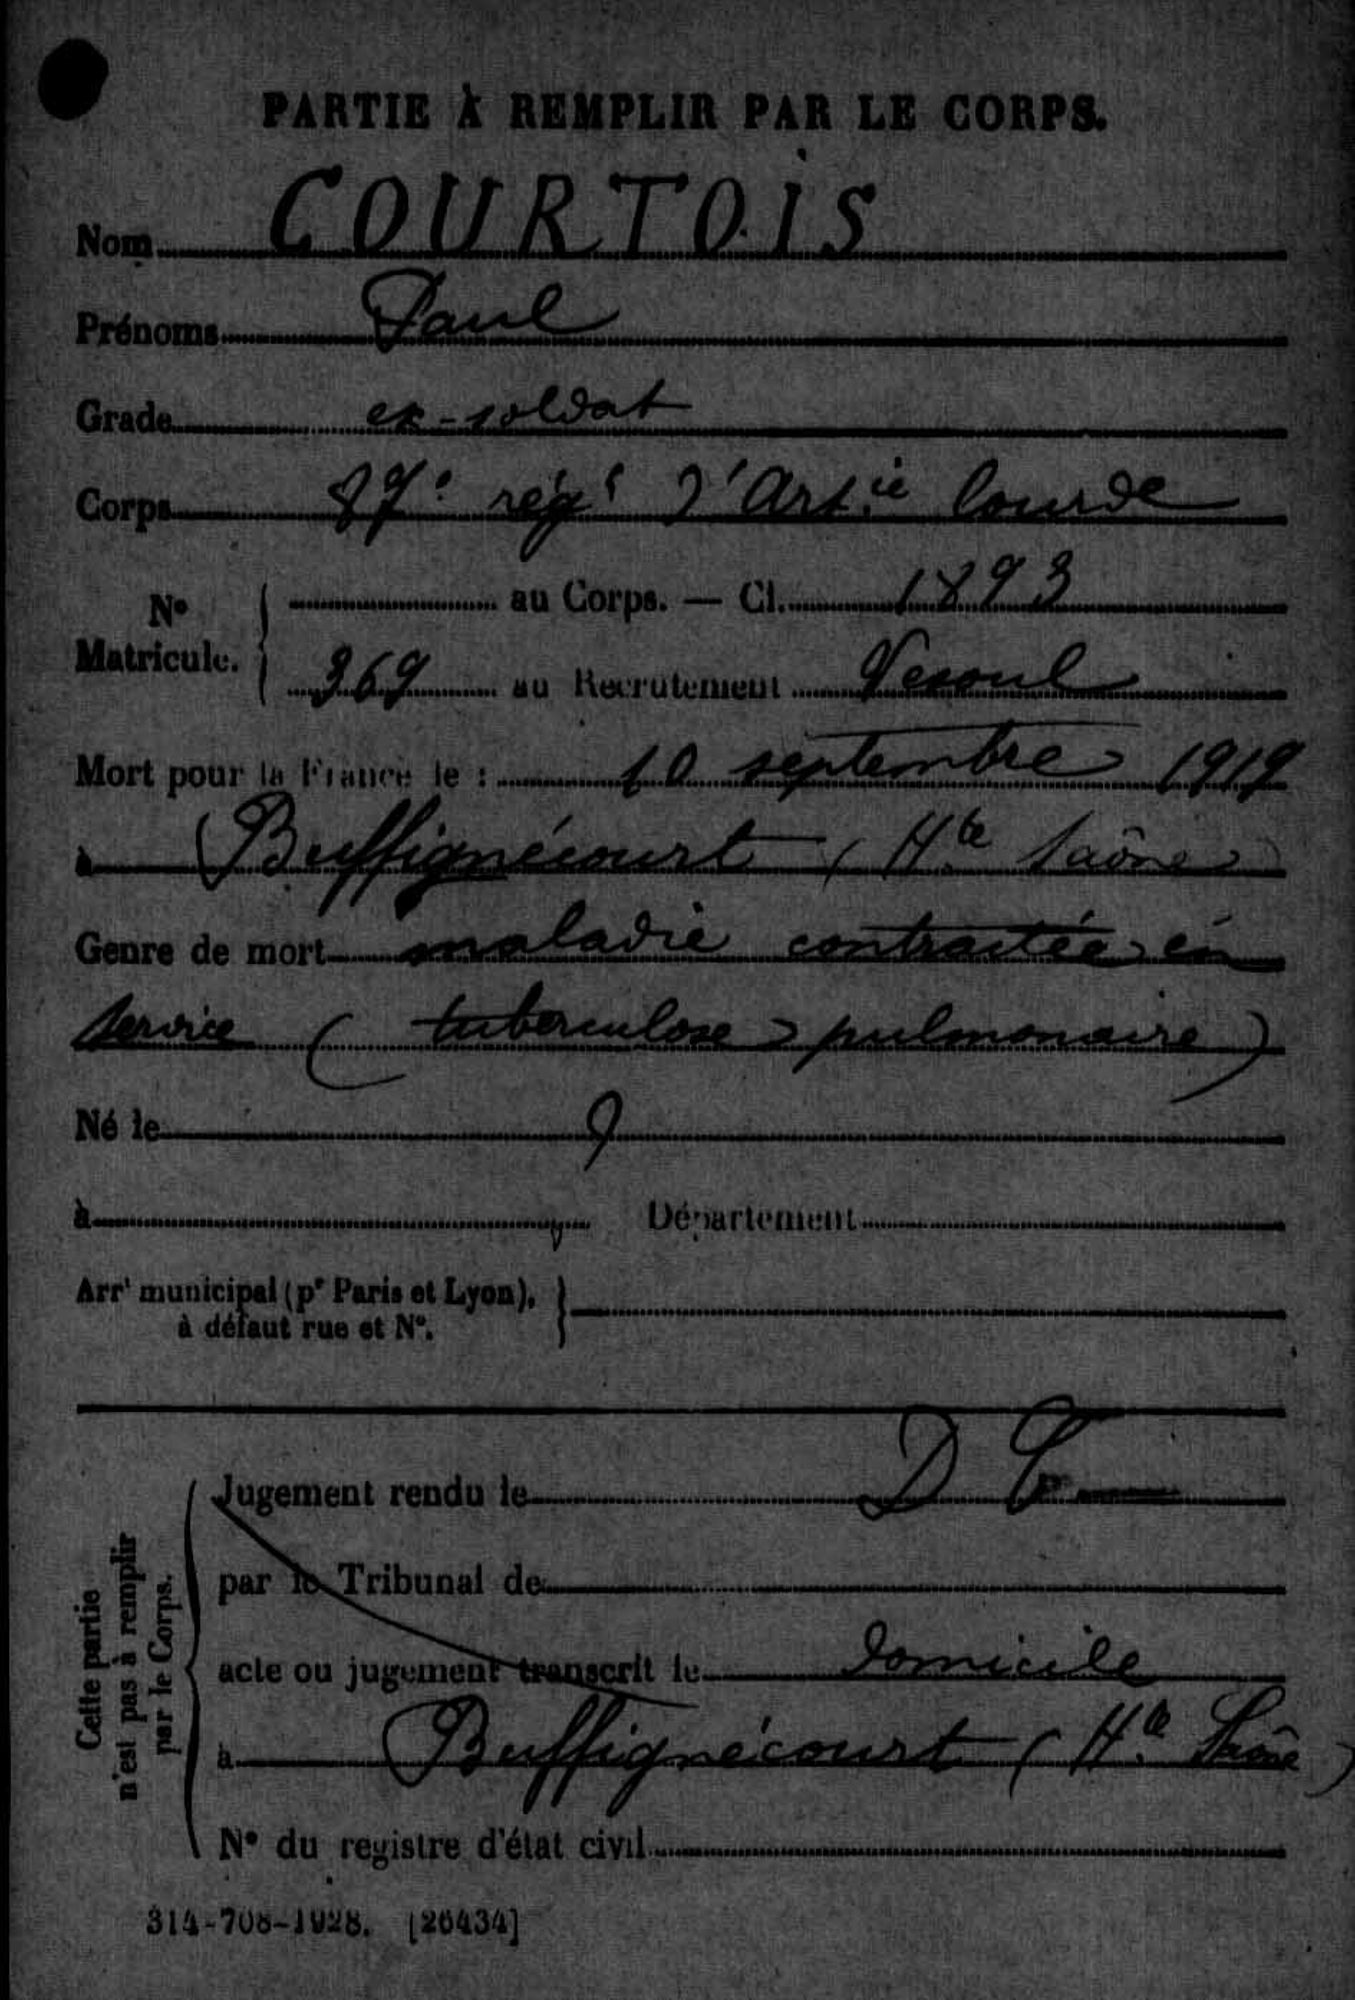 PARTIE À REMPLIR PAR LE CORPS.
Nom COURTOIS
Prénoms Paul
Grade ex-soldat
Corps 87e régt d'Artie lourde
No Matricule. au Corps. — Cl. 1893
369 au Recrutement Vesoul
Mort pour la France le : 10 septembre 1919
à Buffignécourt (Hte Saône)
Genre de mort maladie contractée en
service (tuberculose pulmonaire)
Né le
à Département
Arrt municipal (pr Paris et Lyon),
à défaut rue et No.
Cette partie
n'est pas à remplir
par le Corps.
Jugement rendu le D
par le Tribunal de
acte ou jugement transcrit le domicile
à Buffignécourt (Hte Saône)
No du registre d'état civil
314-708-1928. [26434]